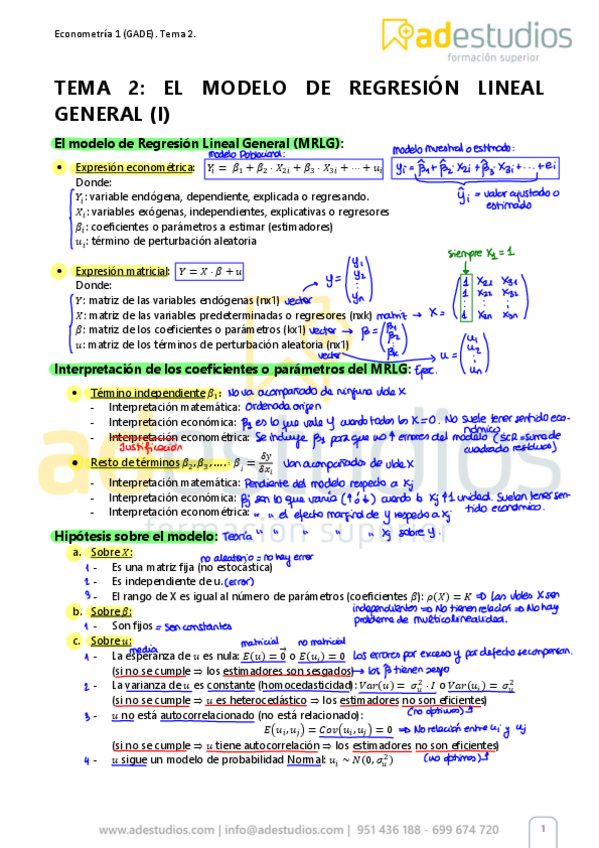 Econometría 1 (GADE). Tema 2.
adestudios
formación superior
TEMA 2: EL MODELO DE REGRESIÓN LINEAL
GENERAL (I)
El modelo de Regresión Lineal General (MRLG):
modelo Poblacional:
modelo muestral o estimado:
Expresión econométrica: Yi = β1 + β2 · X2i + β3 · X3i + ⋯ + ui
yi = β̂1 + β̂2 · X2i + β̂3 · X3i + ... + ei
Donde:
ŷi = valor ajustado o
estimado
Yi: variable endógena, dependiente, explicada o regresando.
Xi: variables exógenas, independientes, explicativas o regresores
βi: coeficientes o parámetros a estimar (estimadores)
ui: término de perturbación aleatoria
siempre X1 = 1
Expresión matricial: Y = X · β + u
y = (y1 y2 ⋮ yn)
Donde:
Y: matriz de las variables endógenas (nx1) vector
X: matriz de las variables predeterminadas o regresores (nxk) matriz → X = (1 X21 X31 1 X22 X32 ⋮ ⋮ ⋮ 1 X2n X3n)
β: matriz de los coeficientes o parámetros (kx1) vector → β = (β1 β2 ⋮ βk)
u: matriz de los términos de perturbación aleatoria (nx1)
vector → u = (u1 u2 ⋮ un)
Interpretación de los coeficientes o parámetros del MRLG: Ejerc.
Término independiente β1: No va acompañado de ninguna vble X
- Interpretación matemática: Ordenada origen
- Interpretación económica: β1 es lo que vale Y cuando todas las X=0. No suele tener sentido eco-
nómico
- Interpretación econométrica: Se incluye β1 para que no ↑ errores del modelo (SCR = suma de
Justificación
cuadrado residuos)
Resto de términos β2, β3, ..... : βj = δy/δxj van acompañados de vble X
- Interpretación matemática: Pendiente del modelo respecto a Xj
- Interpretación económica: βj son lo que varía (↑ ó ↓) cuando Xj ↑ 1 unidad. Suelen tener sen-
tido económico.
- Interpretación econométrica: " " el efecto marginal de y respecto a Xj
Hipótesis sobre el modelo: Teoría " " " " Xj sobre y.
a. Sobre X:
no aleatorio = no hay error
1 - Es una matriz fija (no estocástica)
2 - Es independiente de u. (error)
3 - El rango de X es igual al número de parámetros (coeficientes β): ρ(X) = K ⇒ Las vbles X son
independientes ⇒ No tienen relación ⇒ No hay
problema de multicolinealidad.
b. Sobre β:
1 - Son fijos = Son constantes
c. Sobre u:
media
matricial
no matricial
1 - La esperanza de u es nula: E(u) = 0⃗ o E(ui) = 0 los errores por exceso y por defecto se compensan.
(si no se cumple ⇒ los estimadores son sesgados) → los β tienen sesgo
2 - La varianza de u es constante (homocedasticidad): Var(u) = σu² · I o Var(ui) = σu²
(si no se cumple ⇒ u es heterocedástico ⇒ los estimadores no son eficientes)
(no óptimos)
3 - u no está autocorrelacionado (no está relacionado):
E(ui, uj) = Cov(ui, uj) = 0 ⇒ No relación entre ui y uj
(si no se cumple ⇒ u tiene autocorrelación ⇒ los estimadores no son eficientes)
(no óptimos)
4 - u sigue un modelo de probabilidad Normal: ui ~ N(0, σu²)
www.adestudios.com | info@adestudios.com | 951 436 188 - 699 674 720
1